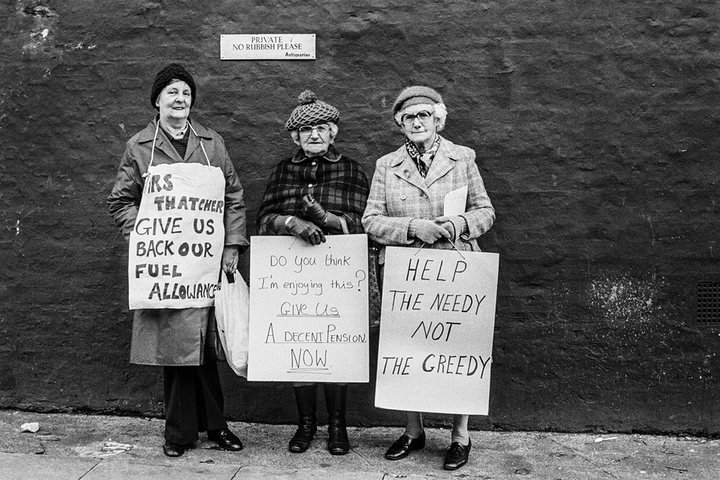 PRIVATE
NO RUBBISH PLEASE
Antiquarius
MRS
THATCHER
GIVE US
BACK OUR
FUEL
ALLOWANCE
DO you think
I'm enjoying this?
GIVE US
A DECENT PENSION
NOW
HELP
THE NEEDY
NOT
THE GREEDY